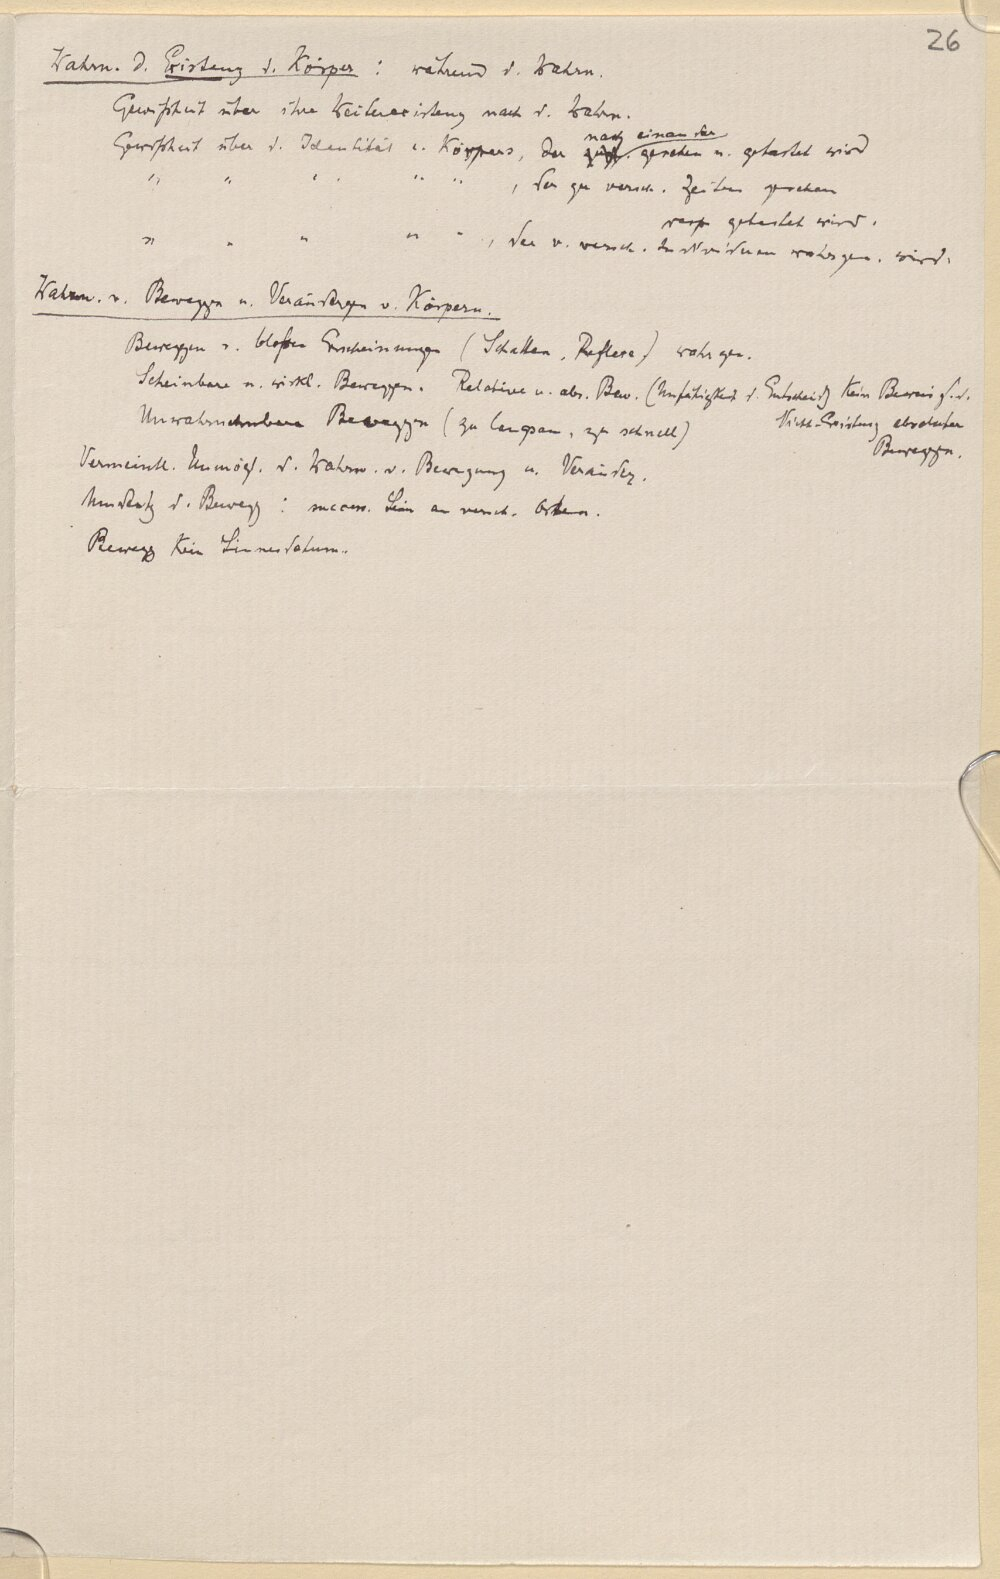 26
Wahrn. d. Existenz d. Körper : während d. Wahrn.
Gewißheit über ihre Weiterexistenz nach d. Wahrn.
nach einander
Gewißheit über d. Identität e. Körpers, der gesehen u. getastet wird
" " " " " , der zu versch. Zeiten gesehen
resp getastet wird.
" " " " " , der v. versch. Individuen wahrgen. wird.
Wahrn. v. Beweggen u. Verändergen v. Körpern.
Beweggen v. bloßen Erscheinungen (Schatten, Reflexe) wahrgen.
Scheinbare u. wirkl. Beweggen. Relative u. abs. Bew. (Unfähigkeit d. Entscheidg Kein Beweis f. d.
Nicht-Existenz absoluter
Beweggen.
Unwahrnehmbare Beweggen (zu langsam, zu schnell)
Vermeintl. Unmögl. d. Wahrn. v. Bewegung u. Veränderg.
d. Bewegg : success. Sein an versch. Orten.
Bewegg Kein Sinnesdatum.